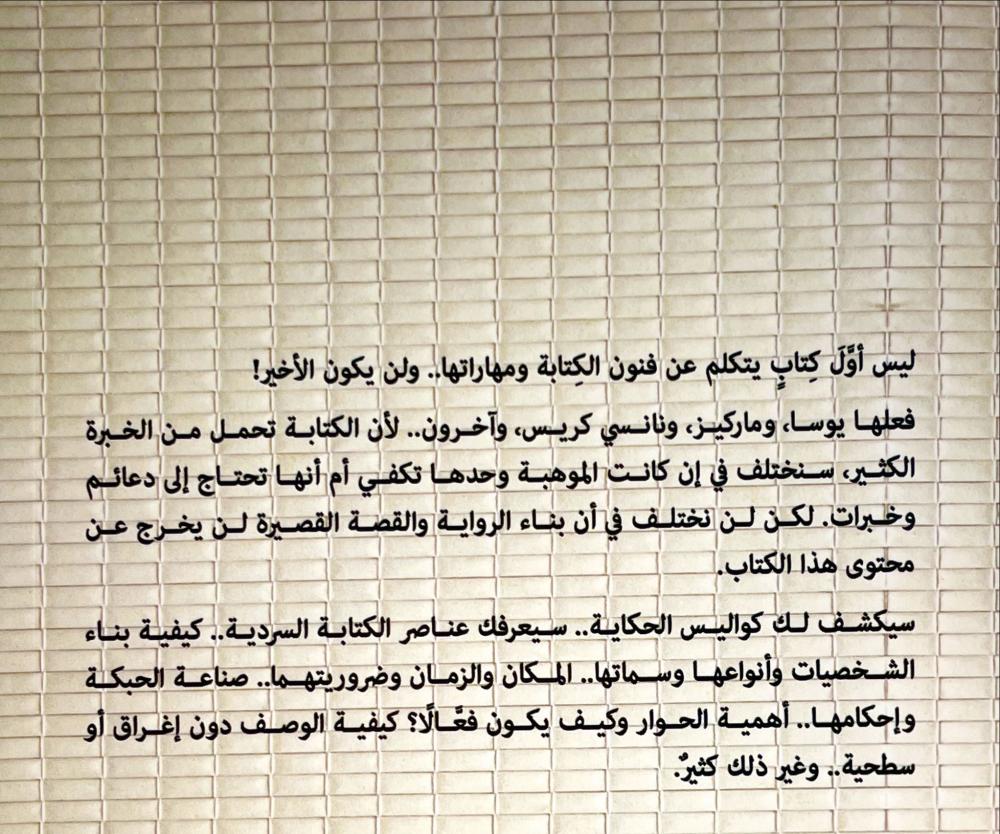 ليس أوَّلَ كِتابٍ يتكلم عن فنون الكِتابة ومهاراتها.. ولن يكون الأخير!
فعلها يوسا، وماركيز، ونانسي كريس، وآخرون.. لأن الكتابة تحمل من الخبرة
الكثير، سنختلف في إن كانت الموهبة وحدها تكفي أم أنها تحتاج إلى دعائم
وخبرات. لكن لن نختلف في أن بناء الرواية والقصة القصيرة لن يخرج عن
محتوى هذا الكتاب.
سيكشف لك كواليس الحكاية.. سيعرفك عناصر الكتابة السردية.. كيفية بناء
الشخصيات وأنواعها وسماتها.. المكان والزمان وضروريتهما.. صناعة الحبكة
وإحكامها.. أهمية الحوار وكيف يكون فعَّالًا؟ كيفية الوصف دون إغراق أو
سطحية.. وغير ذلك كثيرٌ.